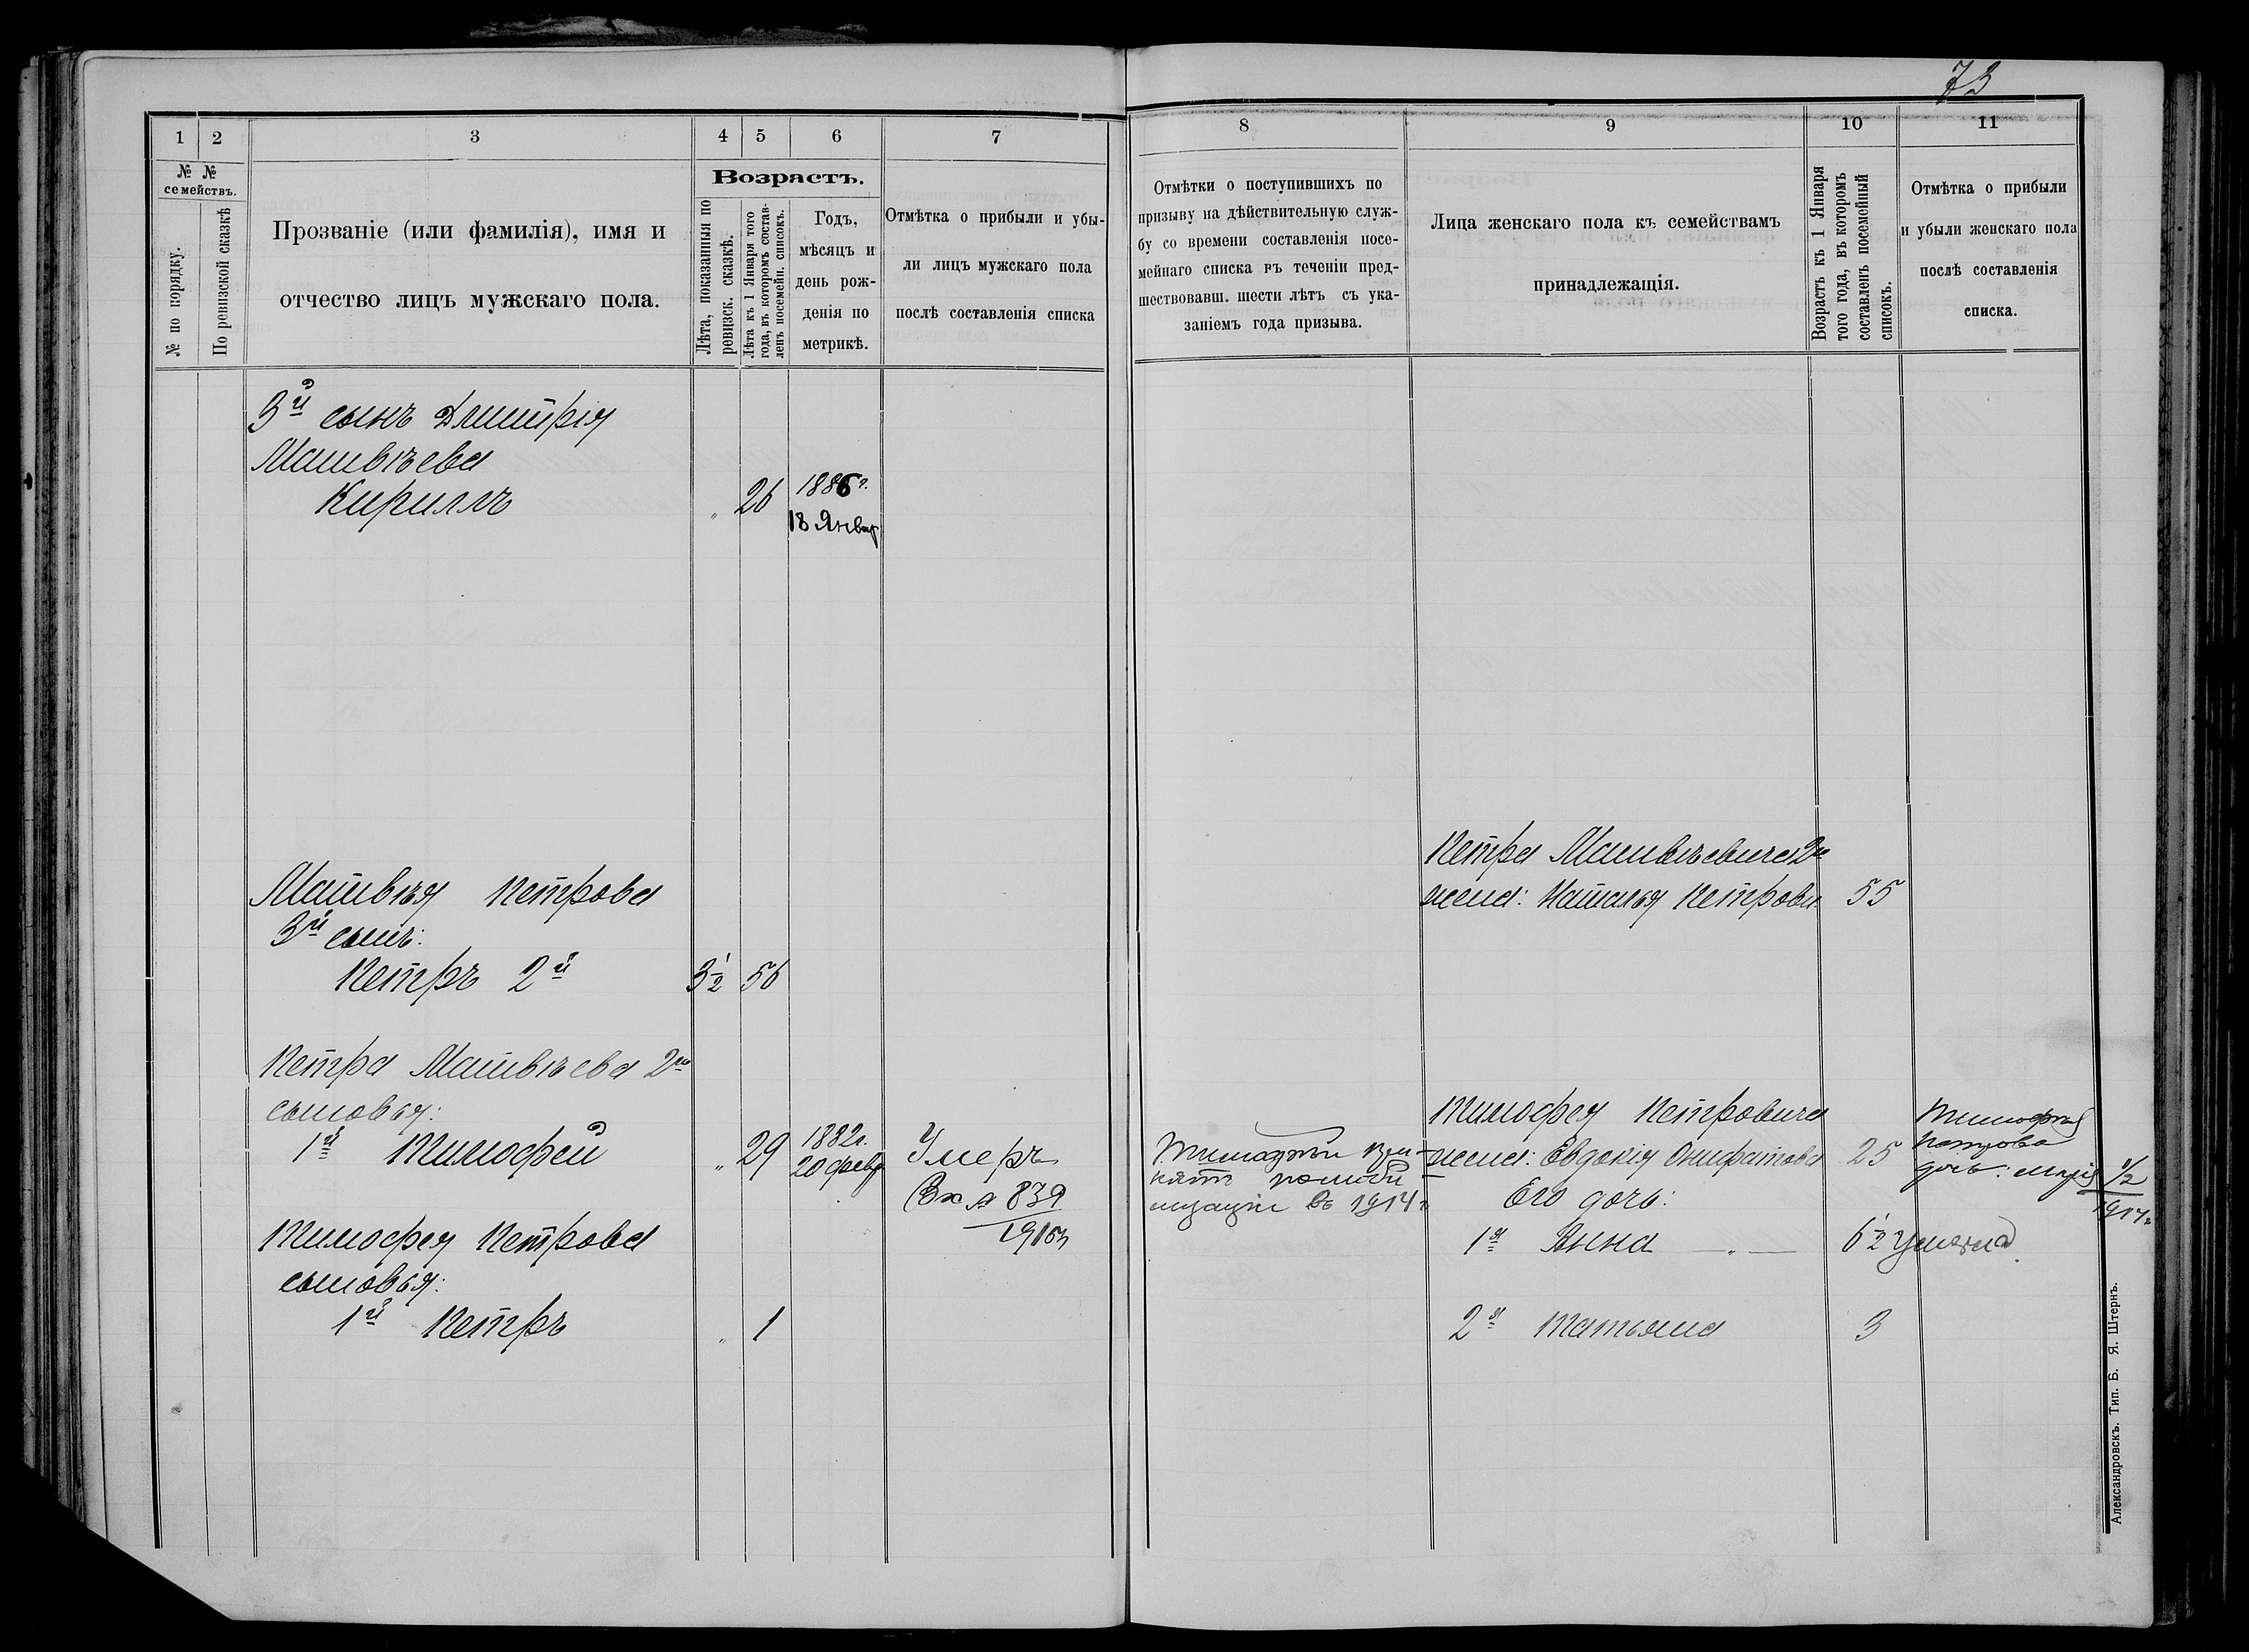 73
1
2
3
4
5
6
7
№ №
семействъ.
№ по порядку.
По ревизской сказкѣ
Прозваніе (или фамилія), имя и
отчество лицъ мужскаго пола.
Возрастъ.
Лѣта, показанныя по
ревизск. сказкѣ.
Лѣта къ 1 Января того
года, въ которомъ состав-
ленъ посемейн. списокъ.
Годъ,
мѣсяцъ и
день рож-
денія по
метрикѣ.
Отмѣтка о прибыли и убы-
ли лицъ мужскаго пола
послѣ составленія списка
3й сынъ Дмитрія
Матвѣева
Кириллъ " 26 1886 г.
18 Январ
Матвѣя Петрова
3й сынъ:
Петръ 2й 3 1/2 56
Петра Матвѣева 2го
сыновья:
1й Тимофей " 29 1882 г.
20 февр
Умеръ
Вх № 839
1915 г
Тимофея Петрова
сыновья:
1й Петръ " 1
8
9
10
11
Отмѣтки о поступившихъ по
призыву на дѣйствительную служ-
бу со времени составленія посе-
мейнаго списка въ теченіи пред-
шествовавш. шести лѣтъ съ ука-
заніемъ года призыва.
Лица женскаго пола къ семействамъ
принадлежащія.
Возрастъ къ 1 Января
того года, въ которомъ
составленъ посемейный
списокъ.
Отмѣтка о прибыли
и убыли женскаго пола
послѣ составленія
списка.
Петра Матвѣевича 2го
жена: Наталья Петрова 55
Тимофея Петровича
жена: Евдокія Онифатова 25
въ 1914 г
Его дочь:
1я Анна 6 1/2 Умерла
2я Татьяна 3
Тимофея
Петрова
дочь: Марія 1/2
1914 г
Александровскъ. Тип. Б. Я. Штернъ.